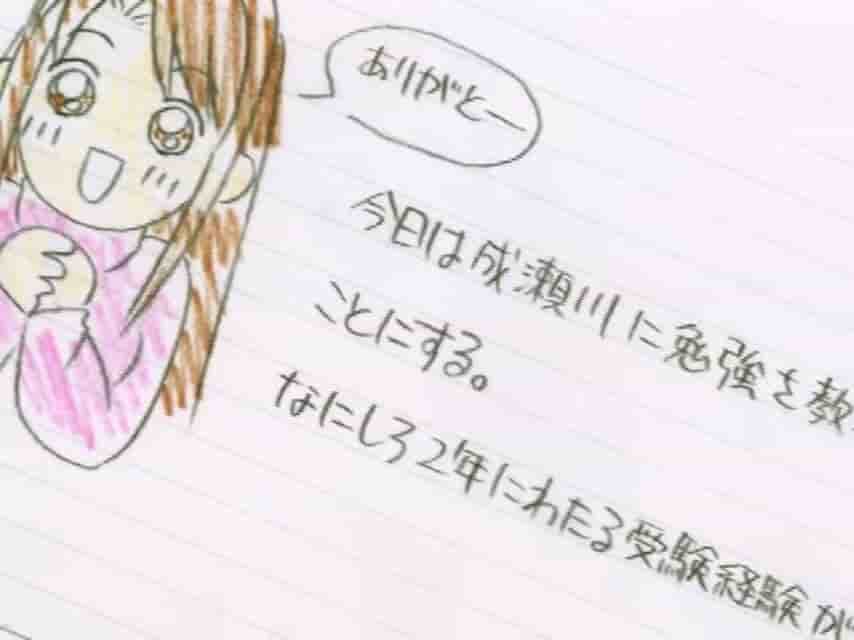 ありがとー
今日は成瀬川に勉強を教
ことにする。
なにしろ2年にわたる受験経験が